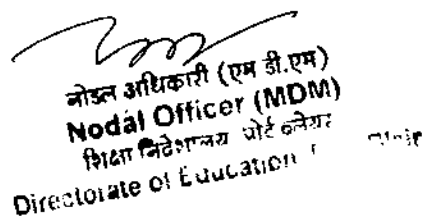 नोडल अधिकारी (एम डी.एम)
Nodal Officer (MDM)
शिक्षा निदेशालय पोर्ट ब्लेयर
Directorate of Education